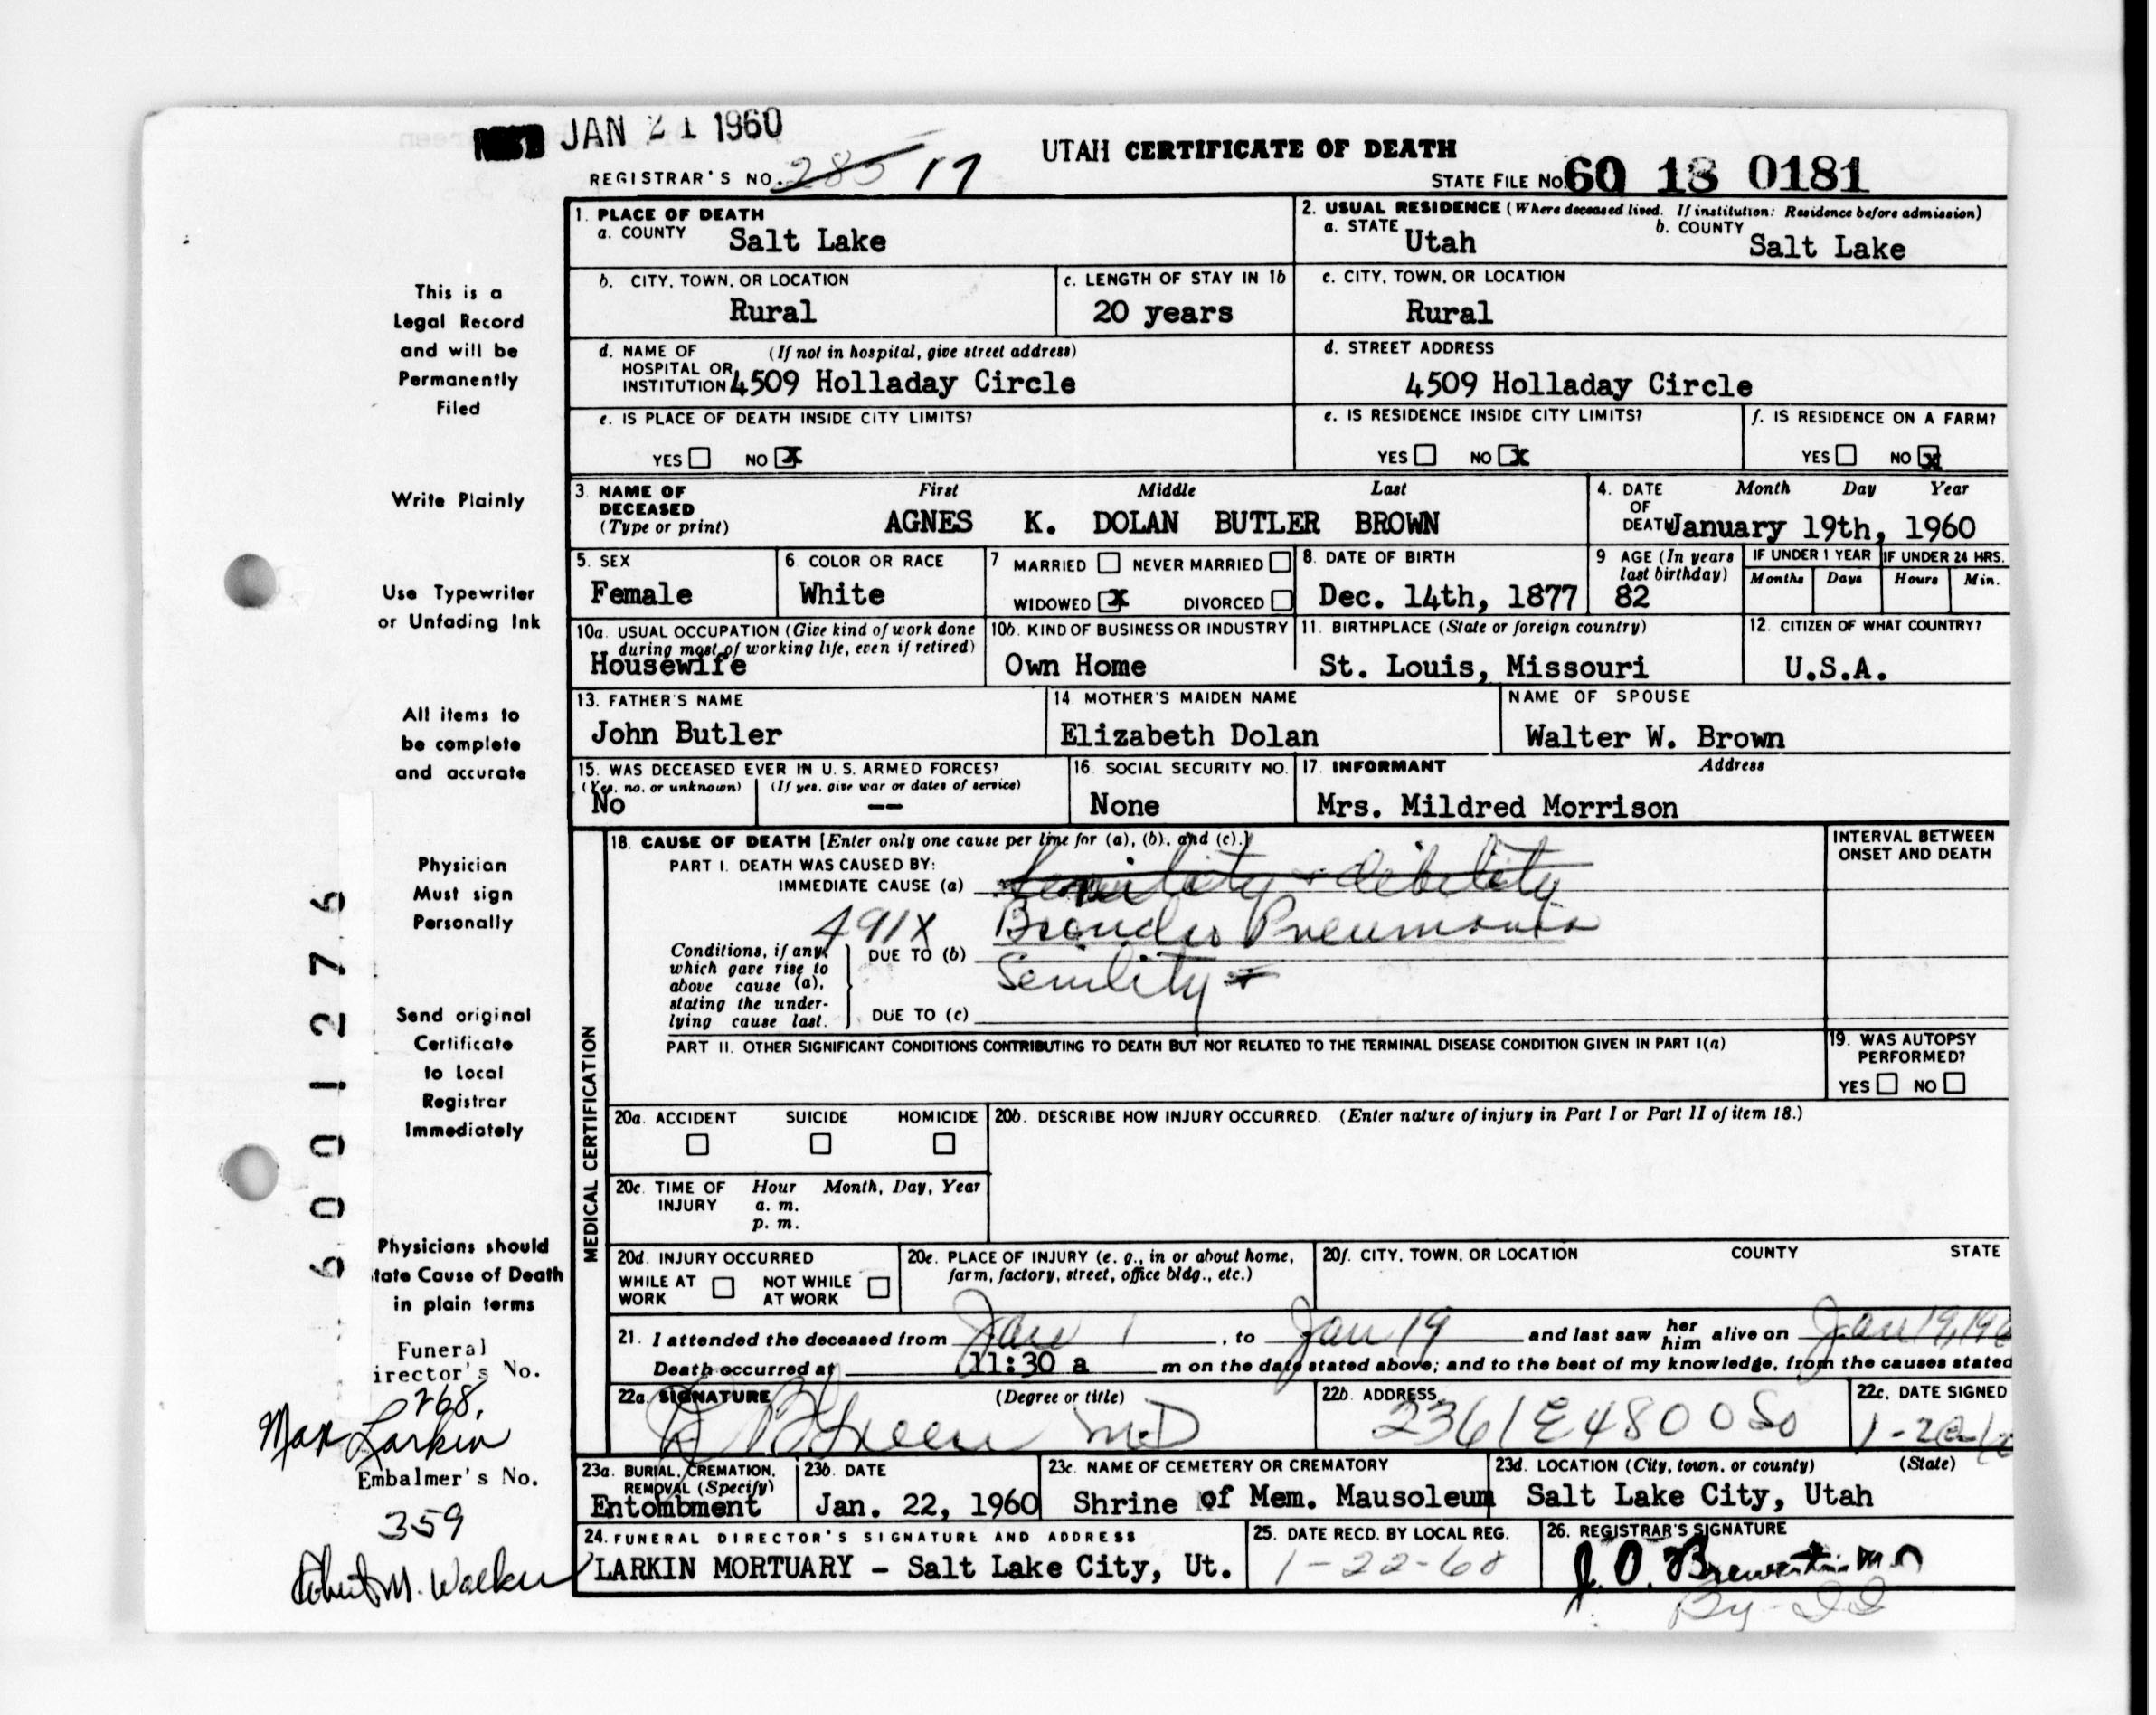 JAN 21 1960
UTAH CERTIFICATE OF DEATH
REGISTRAR'S NO. 285 17
STATE FILE No. 60 18 0181
1. PLACE OF DEATH
a. COUNTY Salt Lake
2. USUAL RESIDENCE (Where deceased lived. If institution: Residence before admission)
a. STATE Utah b. COUNTY Salt Lake
b. CITY, TOWN, OR LOCATION Rural
c. LENGTH OF STAY IN 1b 20 years
c. CITY, TOWN, OR LOCATION Rural
d. NAME OF HOSPITAL OR INSTITUTION (If not in hospital, give street address) 4509 Holladay Circle
d. STREET ADDRESS 4509 Holladay Circle
e. IS PLACE OF DEATH INSIDE CITY LIMITS?
YES NO X
e. IS RESIDENCE INSIDE CITY LIMITS?
YES NO X
f. IS RESIDENCE ON A FARM?
YES NO X
3. NAME OF DECEASED (Type or print)
First Middle Last
AGNES K. DOLAN BUTLER BROWN
4. DATE OF DEATH Month Day Year
January 19th, 1960
5. SEX Female
6. COLOR OR RACE White
7 MARRIED NEVER MARRIED
WIDOWED X DIVORCED
8. DATE OF BIRTH Dec. 14th, 1877
9 AGE (In years last birthday) 82
IF UNDER 1 YEAR Months Days
IF UNDER 24 HRS. Hours Min.
10a. USUAL OCCUPATION (Give kind of work done during most of working life, even if retired)
Housewife
10b. KIND OF BUSINESS OR INDUSTRY
Own Home
11. BIRTHPLACE (State or foreign country)
St. Louis, Missouri
12. CITIZEN OF WHAT COUNTRY?
U.S.A.
13. FATHER'S NAME
John Butler
14. MOTHER'S MAIDEN NAME
Elizabeth Dolan
NAME OF SPOUSE
Walter W. Brown
15. WAS DECEASED EVER IN U.S. ARMED FORCES?
(Yes, no, or unknown) (If yes, give war or dates of service)
No --
16. SOCIAL SECURITY NO.
None
17. INFORMANT Address
Mrs. Mildred Morrison
MEDICAL CERTIFICATION
18. CAUSE OF DEATH [Enter only one cause per line for (a), (b), and (c).]
INTERVAL BETWEEN ONSET AND DEATH
PART I. DEATH WAS CAUSED BY:
IMMEDIATE CAUSE (a) Senility + debility
491X Pneumonia
Conditions, if any, which gave rise to above cause (a), stating the underlying cause last.
DUE TO (b)
Senility
DUE TO (c)
PART II. OTHER SIGNIFICANT CONDITIONS CONTRIBUTING TO DEATH BUT NOT RELATED TO THE TERMINAL DISEASE CONDITION GIVEN IN PART I(a)
19. WAS AUTOPSY PERFORMED?
YES NO
20a. ACCIDENT SUICIDE HOMICIDE
20b. DESCRIBE HOW INJURY OCCURRED. (Enter nature of injury in Part I or Part II of item 18.)
20c. TIME OF INJURY Hour Month, Day, Year
a. m.
p. m.
20d. INJURY OCCURRED
WHILE AT WORK NOT WHILE AT WORK
20e. PLACE OF INJURY (e. g., in or about home, farm, factory, street, office bldg., etc.)
20f. CITY, TOWN, OR LOCATION COUNTY STATE
21. I attended the deceased from Jan 1, to Jan 19 and last saw her him alive on Jan 19, 196
Death occurred at 11:30 a m on the date stated above; and to the best of my knowledge, from the causes stated
22a. SIGNATURE (Degree or title)
Green MD
22b. ADDRESS
2361 E 4800 So
22c. DATE SIGNED
1-20-6
23a. BURIAL, CREMATION, REMOVAL (Specify)
Entombment
23b. DATE
Jan. 22, 1960
23c. NAME OF CEMETERY OR CREMATORY
Shrine of Mem. Mausoleum
23d. LOCATION (City, town, or county) (State)
Salt Lake City, Utah
24. FUNERAL DIRECTOR'S SIGNATURE AND ADDRESS
LARKIN MORTUARY - Salt Lake City, Ut.
25. DATE RECD. BY LOCAL REG.
1-22-60
26. REGISTRAR'S SIGNATURE
This is a
Legal Record
and will be
Permanently
Filed
Write Plainly
Use Typewriter
or Unfading Ink
All items to
be complete
and accurate
Physician
Must sign
Personally
Send original
Certificate
to Local
Registrar
Immediately
Physicians should
tate Cause of Death
in plain terms
Funeral
irector's No.
268
Max Larkin
Embalmer's No.
359
Robert M. Walker
6001276